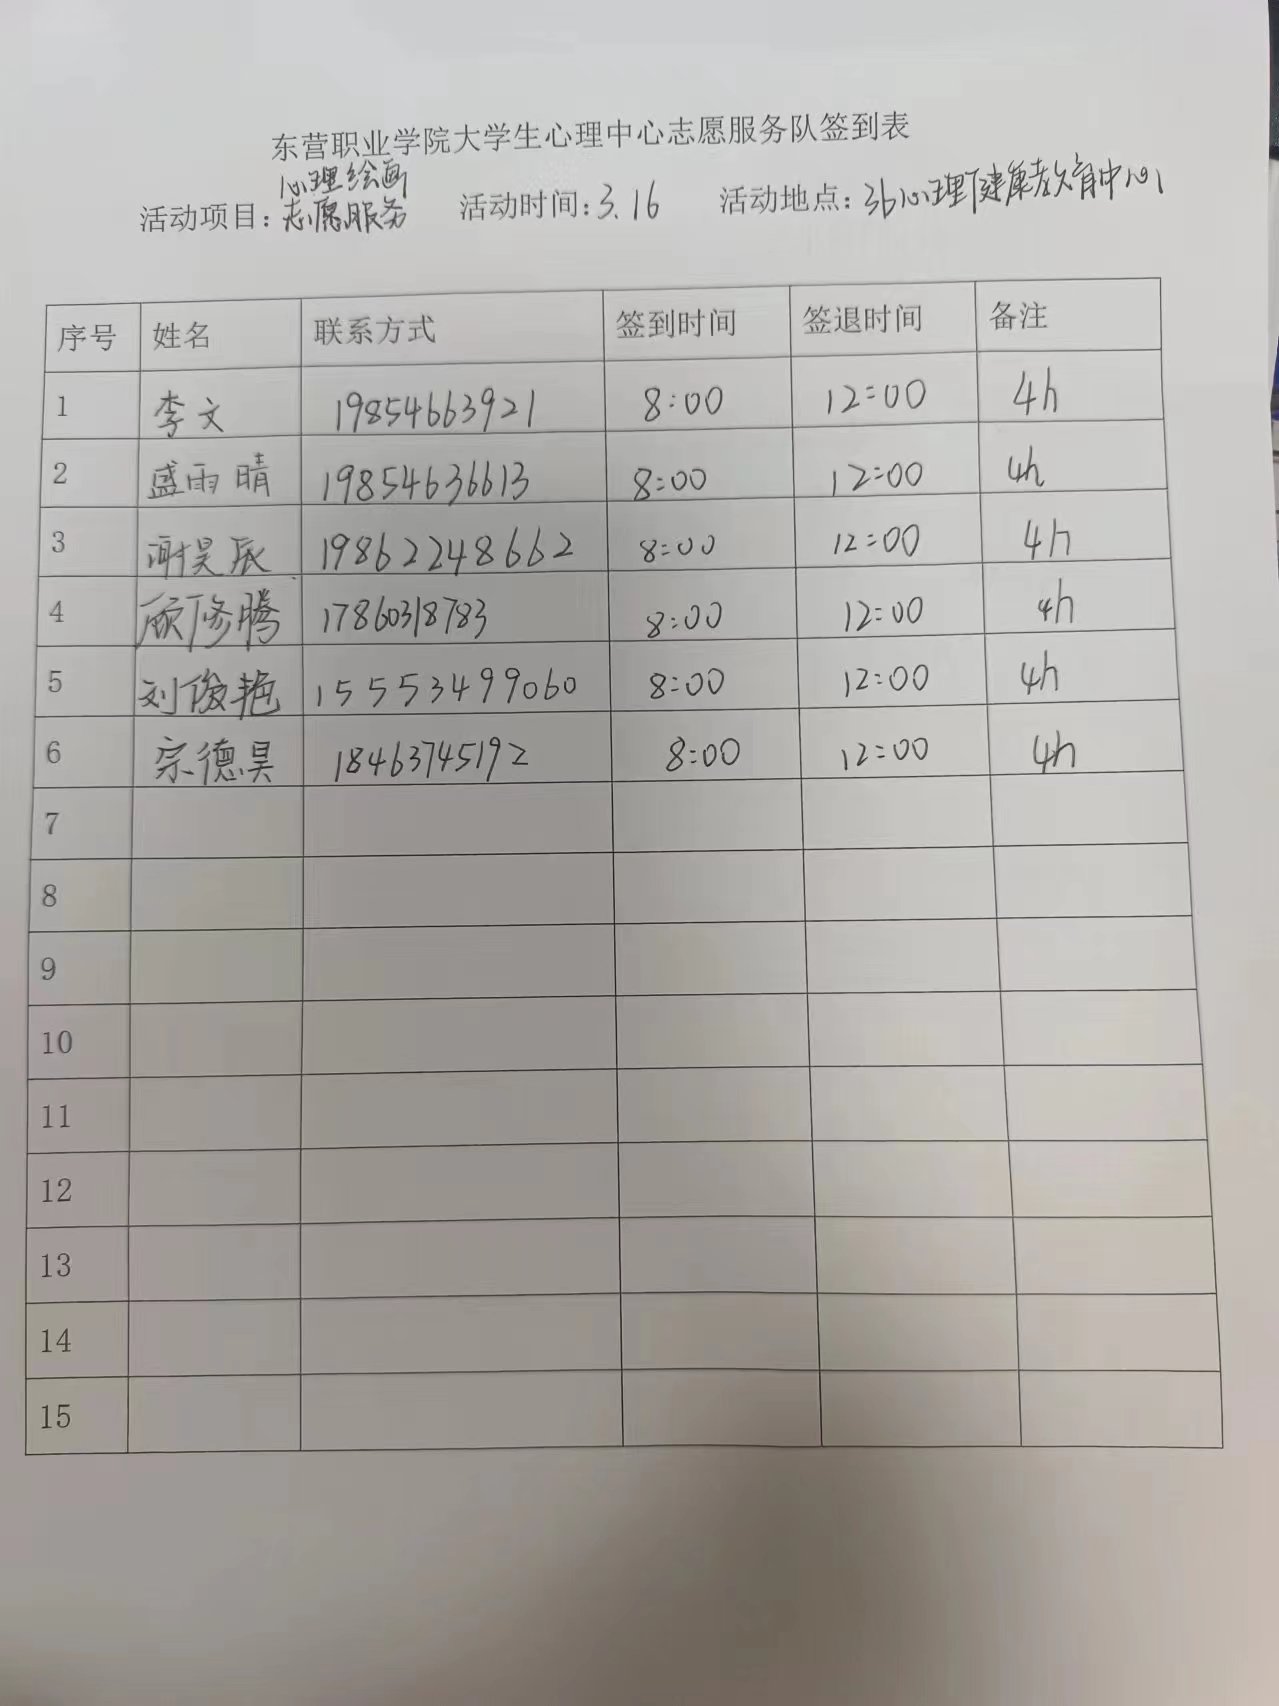 东营职业学院大学生心理中心志愿服务队签到表
心理绘画
活动项目：志愿服务 活动时间：3.16 活动地点：3b心理健康教育中心
序号 姓名 联系方式 签到时间 签退时间 备注
1 李文 19854663921 8:00 12:00 4h
2 盛雨晴 19854636613 8:00 12:00 4h
3 谢昊辰 19862248662 8:00 12:00 4h
4 顾修腾 17860318783 8:00 12:00 4h
5 刘俊艳 15553499060 8:00 12:00 4h
6 宗德昊 18463745192 8:00 12:00 4h
7
8
9
10
11
12
13
14
15